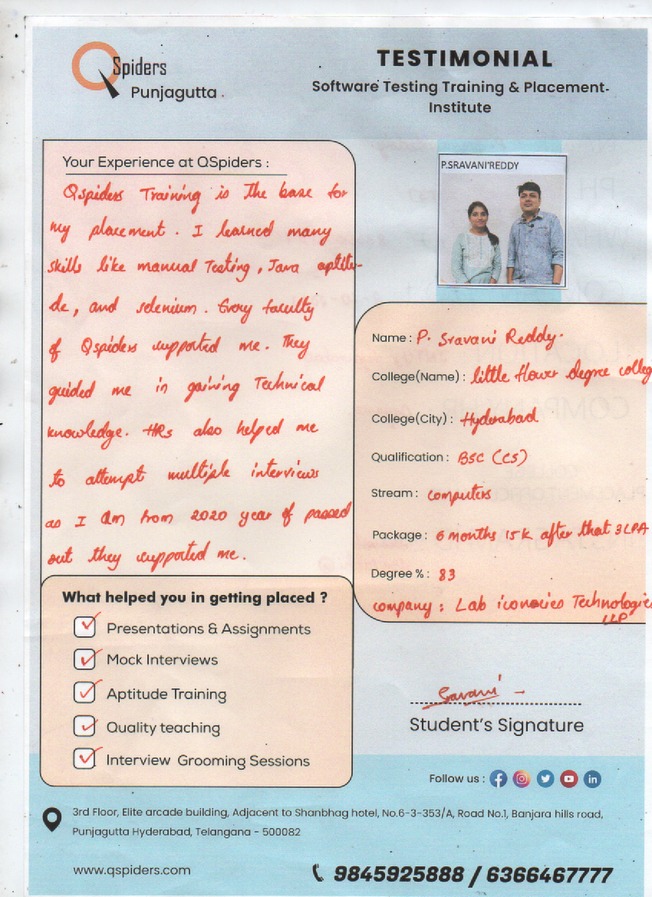 QSpiders
Punjagutta
TESTIMONIAL
Software Testing Training & Placement
Institute
Your Experience at QSpiders :
Qspiders Training is the base for
my placement. I learned many
skills like manual Testing, Java aptitu-
de, and selenium. Every faculty
of Qspiders supported me. They
guided me in gaining Technical
knowledge. HRs also helped me
to attempt multiple interviews
as I am from 2020 year of passed
out they supported me.
P.SRAVANI REDDY
Name : P. Sravani Reddy.
College(Name) : little flower degree colleg
College(City) : Hyderabad
Qualification : BSC (CS)
Stream : computers
Package : 6 months 15k after that 3LPA
Degree % : 83
company : Lab iconocies Technologie
LLP
What helped you in getting placed ?
Presentations & Assignments
Mock Interviews
Aptitude Training
Quality teaching
Interview Grooming Sessions
Sravani
Student's Signature
Follow us :
3rd Floor, Elite arcade building, Adjacent to Shanbhag hotel, No.6-3-353/A, Road No.1, Banjara hills road,
Punjagutta Hyderabad, Telangana - 500082
www.qspiders.com
9845925888 / 6366467777